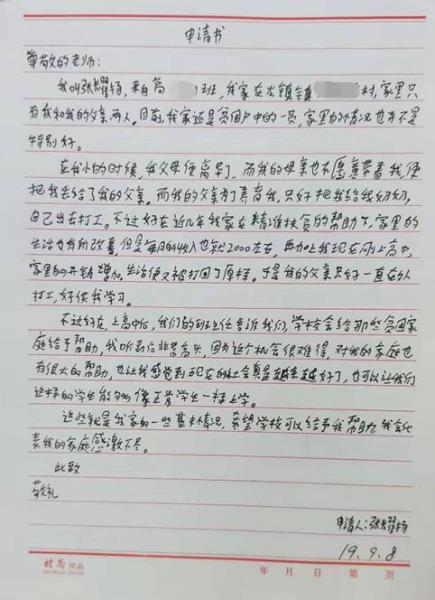 申请书
尊敬的老师：
我叫张耀扬，来自高班，我家在火镇镇村，家里只
有我和我的父亲两人。目前，我家还是贫困户中的一员，家里的情况也并不是
特别好。
在我小的时候，我父母便离异了，而我的母亲也不愿意带着我，便
把我丢给了我的父亲。而我的父亲为了养育我，只好把我给我奶奶，
自己出去打工。不过好在近几年我家在精准扶贫的帮助下，家里的
生活也有所改善，但是每月的收入也就2000左右，再加上我现在刚上高中，
家里的开销增加，生活便又被打回了原样。于是我的父亲只好一直在外
打工，好供我学习。
不过好在，上高中后，我们的班主任告诉我们，学校会给那些贫困家
庭给予帮助，我听到后非常高兴，因为这个机会很难得，对我的家庭也
有很大的帮助，也让我感觉到现在的社会真是越来越好了，也可以让我们
这样的学生能够像正常学生一样上学。
这些就是我家的一些基本情况，希望学校可以给予我帮助，我会代
表我的家庭感激不尽。
此致
敬礼
申请人：张耀扬
19.9.8
时尚 纸品
年 月 日 第 页